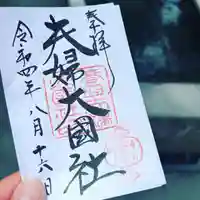 奉拝
夫婦大國社
令和四年八月十六日